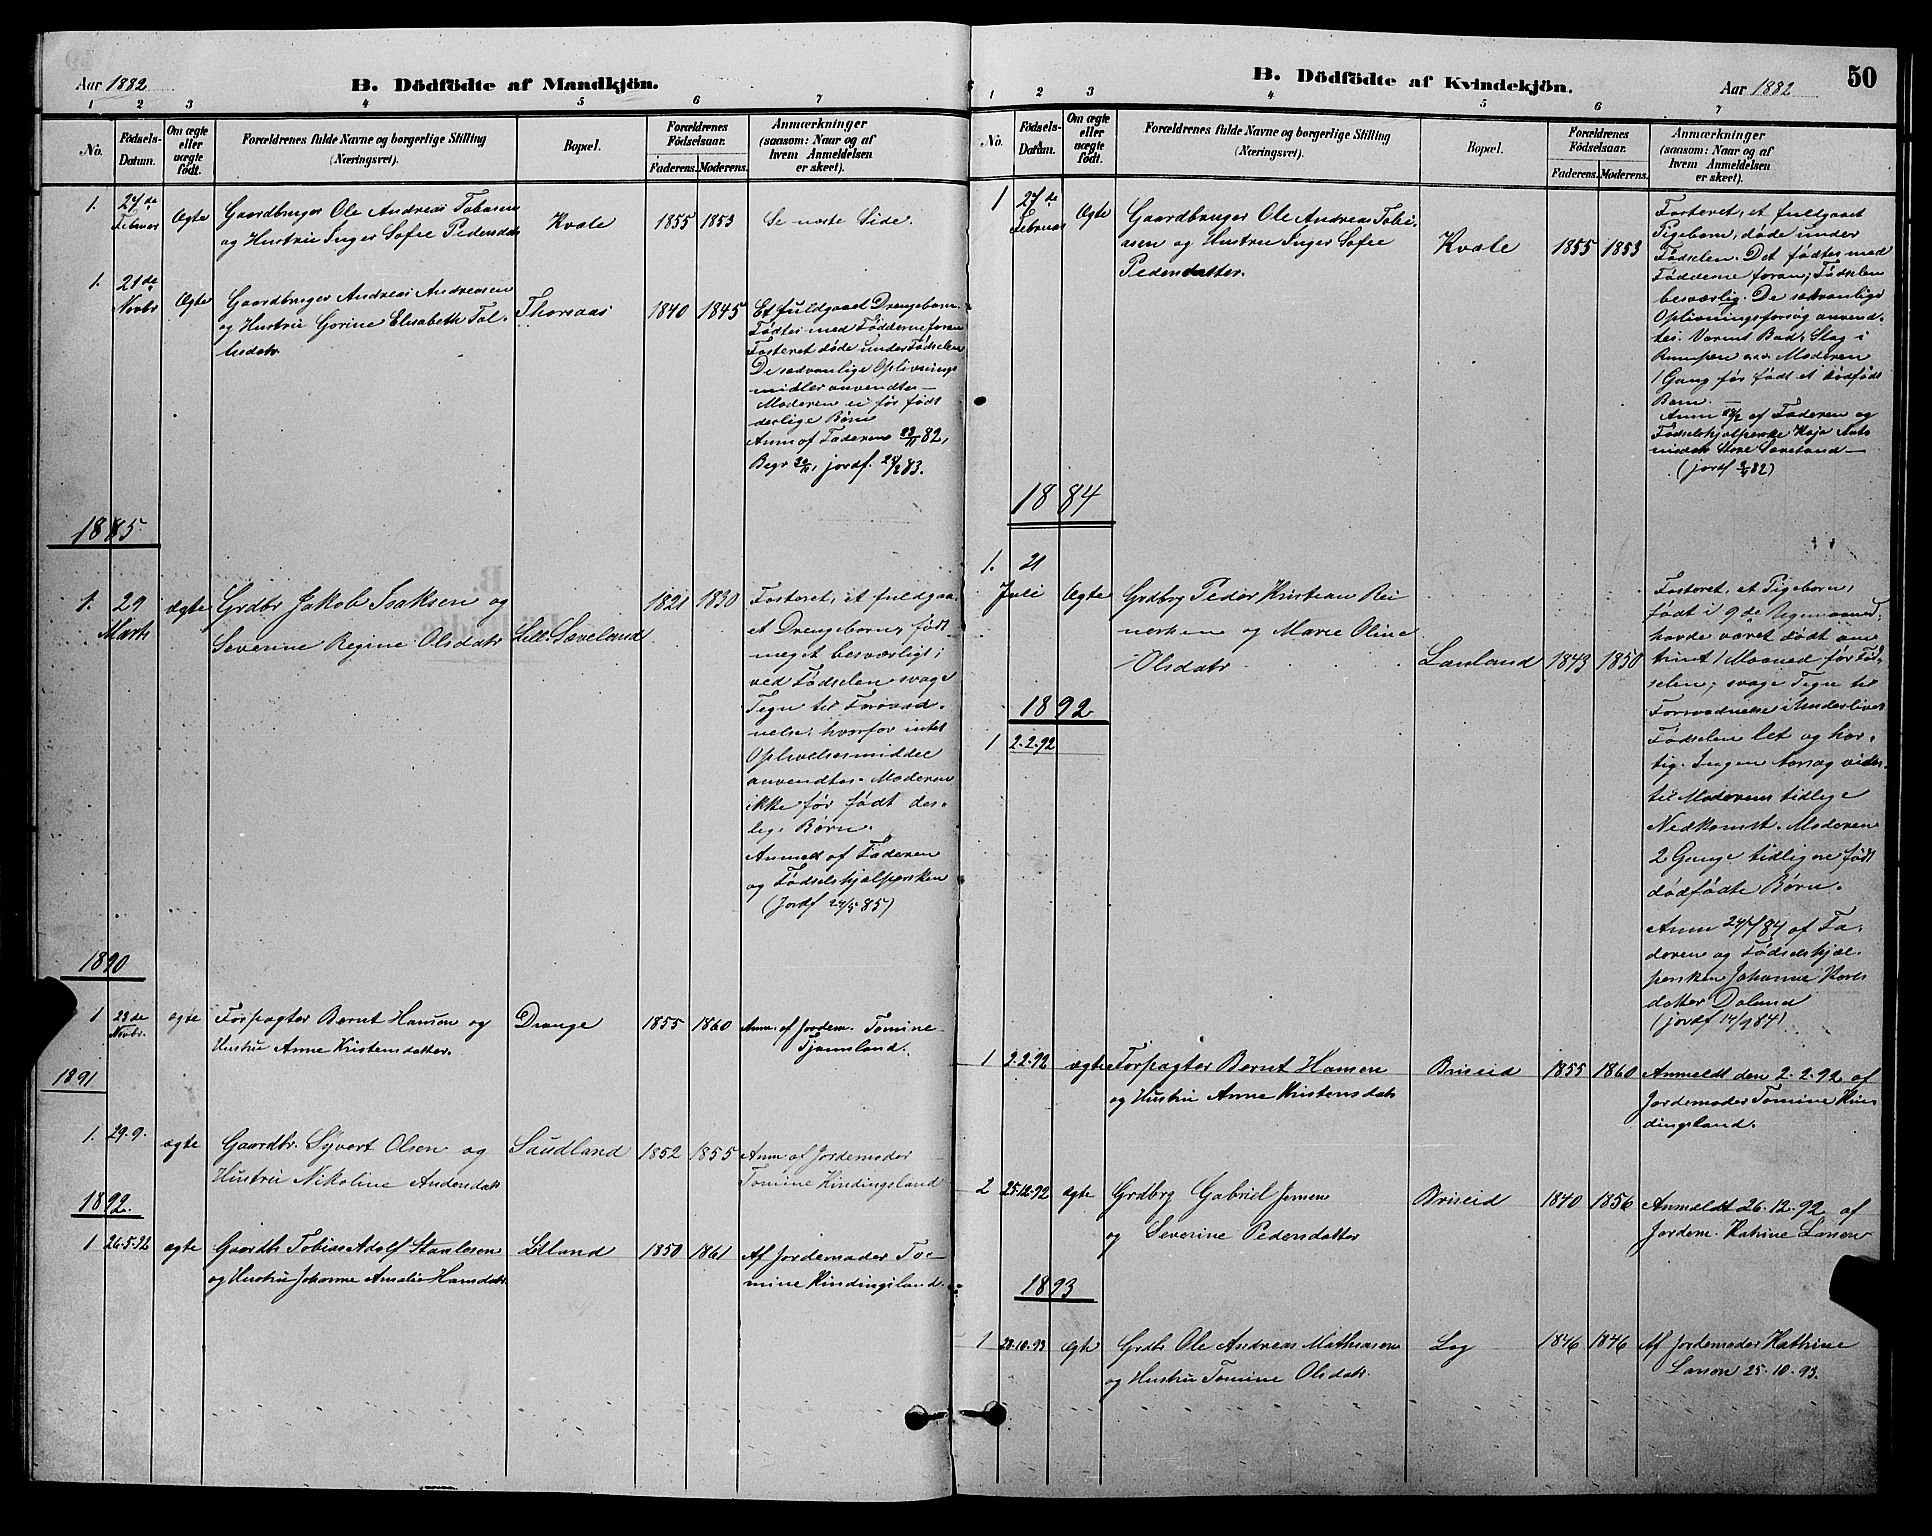 Aar 1882
B. Dödfödte af Mandkjön.
1 2 3 4 5 6 7
No.
Födsels-
Datum.
Om ægte
eller
uægte
født.
Forældrenes fulde Navne og borgerlige Stilling
(Næringsvei).
Bopæl.
Forældrenes
Fødselsaar.
Faderens. Moderens.
Anmærkninger
(saasom: Naar og af
hvem Anmeldelsen
er skeet).
1. 27de Februar Ægte
Gaardbruger Ole Andreas Tobiasen
og Hustru Inger Sofie Pedersdatr
Kvale 1855 1853
Se næste Side.
1. 21de Novbr Ægte
Gaardbruger Andreas Andreasen
og Hustru Gorine Elisabeth Tol-
lisdatr
Thorsaas 1840 1845
Et fuldgaaet Drengebarn.
Fødtes med Fødderne foran
Fosteret døde under Fødselen
De sædvanlige Oplivnings
midler anvendtes —
Moderen ei før født
derlige Børn
Anm af Faderen 23/11 82,
Begr jordf. 83.
1885
1. 29 Marts ægte
Grdbr Jakob Isaksen og
Severine Regine Olsdatr
Lill. Sæveland 1821 1830
Fosteret, et fuldgaa-
et Drengebarn, født
meget besværligt;
ved Fødselen svage
Tegn til Forraad-
nelse; hvorfor intet
Oplivelsesmiddel
anvendtes. Moderen
ikke før født des-
lige Børn.
Anmed af Faderen
og Fødselshjælpersken
(Jordf 24/5 85)
1890
1 23de Novbr. ægte
Forpagter Bernt Hansen og
Hustru Anne Kristensdatter.
Drange 1855 1860
Anm. af Jordem. Tomine
Tjomsland.
1891
1. 29.9. ægte
Gaardbr. Syvert Olsen og
Hustru Nikoline Andersdatr
Saudland 1852 1855
Anm af Jordemoder
Tomine Kindingsland
1892.
1 26.5.92 ægte
Gaardb Tobias Adolf Staalesen
og Hustru Johanne Amalie Hansdatr.
Lilland 1850 1861
Af Jordemoder To-
mine Kindingsland.
B. Dödfödte af Kvindekjön.
Aar 1882
50
1 2 3 4 5 6 7
No.
Födsels-
Datum.
Om ægte
eller
uægte
födt.
Forældrenes fulde Navne og borgerlige Stilling
(Næringsvei).
Bopæl.
Forældrenes
Fødselsaar.
Faderens. Moderens.
Anmærkninger
(saasom: Naar og af
hvem Anmeldelsen
er skeet).
1 27de Februar Ægte
Gaardbruger Ole Andreas Tobi-
sen og Hustru Inger Sofie
Pedersdatter.
Kvale 1855 1853
Fosteret, et fuldgaaet
Pigebarn, døde under
Fødselen. Det fødtes med
Fødderne foran; Fødselen
besværlig. De sædvanlige
Oplivningsforsøg anvend-
tes. Varmt Bad, Slag i
Rumpen Moderen
1 Gang før født et dødfødt
Barn. —
Anm af Faderen og
Fødselshjælperske Kaja
Store Sæveland —
(jordf 82)
1884
1. 21 Juli Ægte
Grdbrg Peder Kristian Rei
nertsen og Marie Oline
Olsdatr
Lauland 1843 1850
Fosteret, et Pigebarn,
født i 9de Svgmaaned,
havde været dødt om
trent 1 Maaned før Fød-
selen; svage Tegn til
Forraadnelse i Underlivet
Fødselen let og hur-
tig. Ingen Aarsag vides
til Moderens tidlige
Nedkomst. Moderen
2 Gange tidligere født
dødfødte Børn.
Anm 24/7 84 af Fa-
deren og Fødselshjæl-
persken Johanne
datter Doland
(jordf 14/9 84)
1892
1 2.2.92
1 2.2.92 ægte
Forpagter Bernt Hansen
og Hustru Anne Kristensdatr
Briseid 1855 1860
Anmeldt den 2.2.92 af
Jordemoder Tomine Kin-
dingsland.
2 25.12.92 ægte
Grdbrg Gabriel Jensen
og Severine Pedersdatter
Briseid 1840 1856
Anmeldt 26.12.92 af
Jordem. Katrine Larsen
1893
1 20.10.93 ægte
Grdb Ole Andreas Mathiasen
og Hustru Tomine Olsdatr.
Log 1846 1846
Af Jordemoder Kathrine
Larsen 25.10.93.